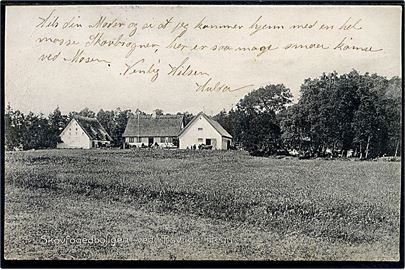 Hils din Moder og si at jeg kommer hjem med en hel
masse Skovbregner, her er saa mage smaa kønne
ved Mosen. Venlig Hilsen
Hulda
Skovfogedboligen ved